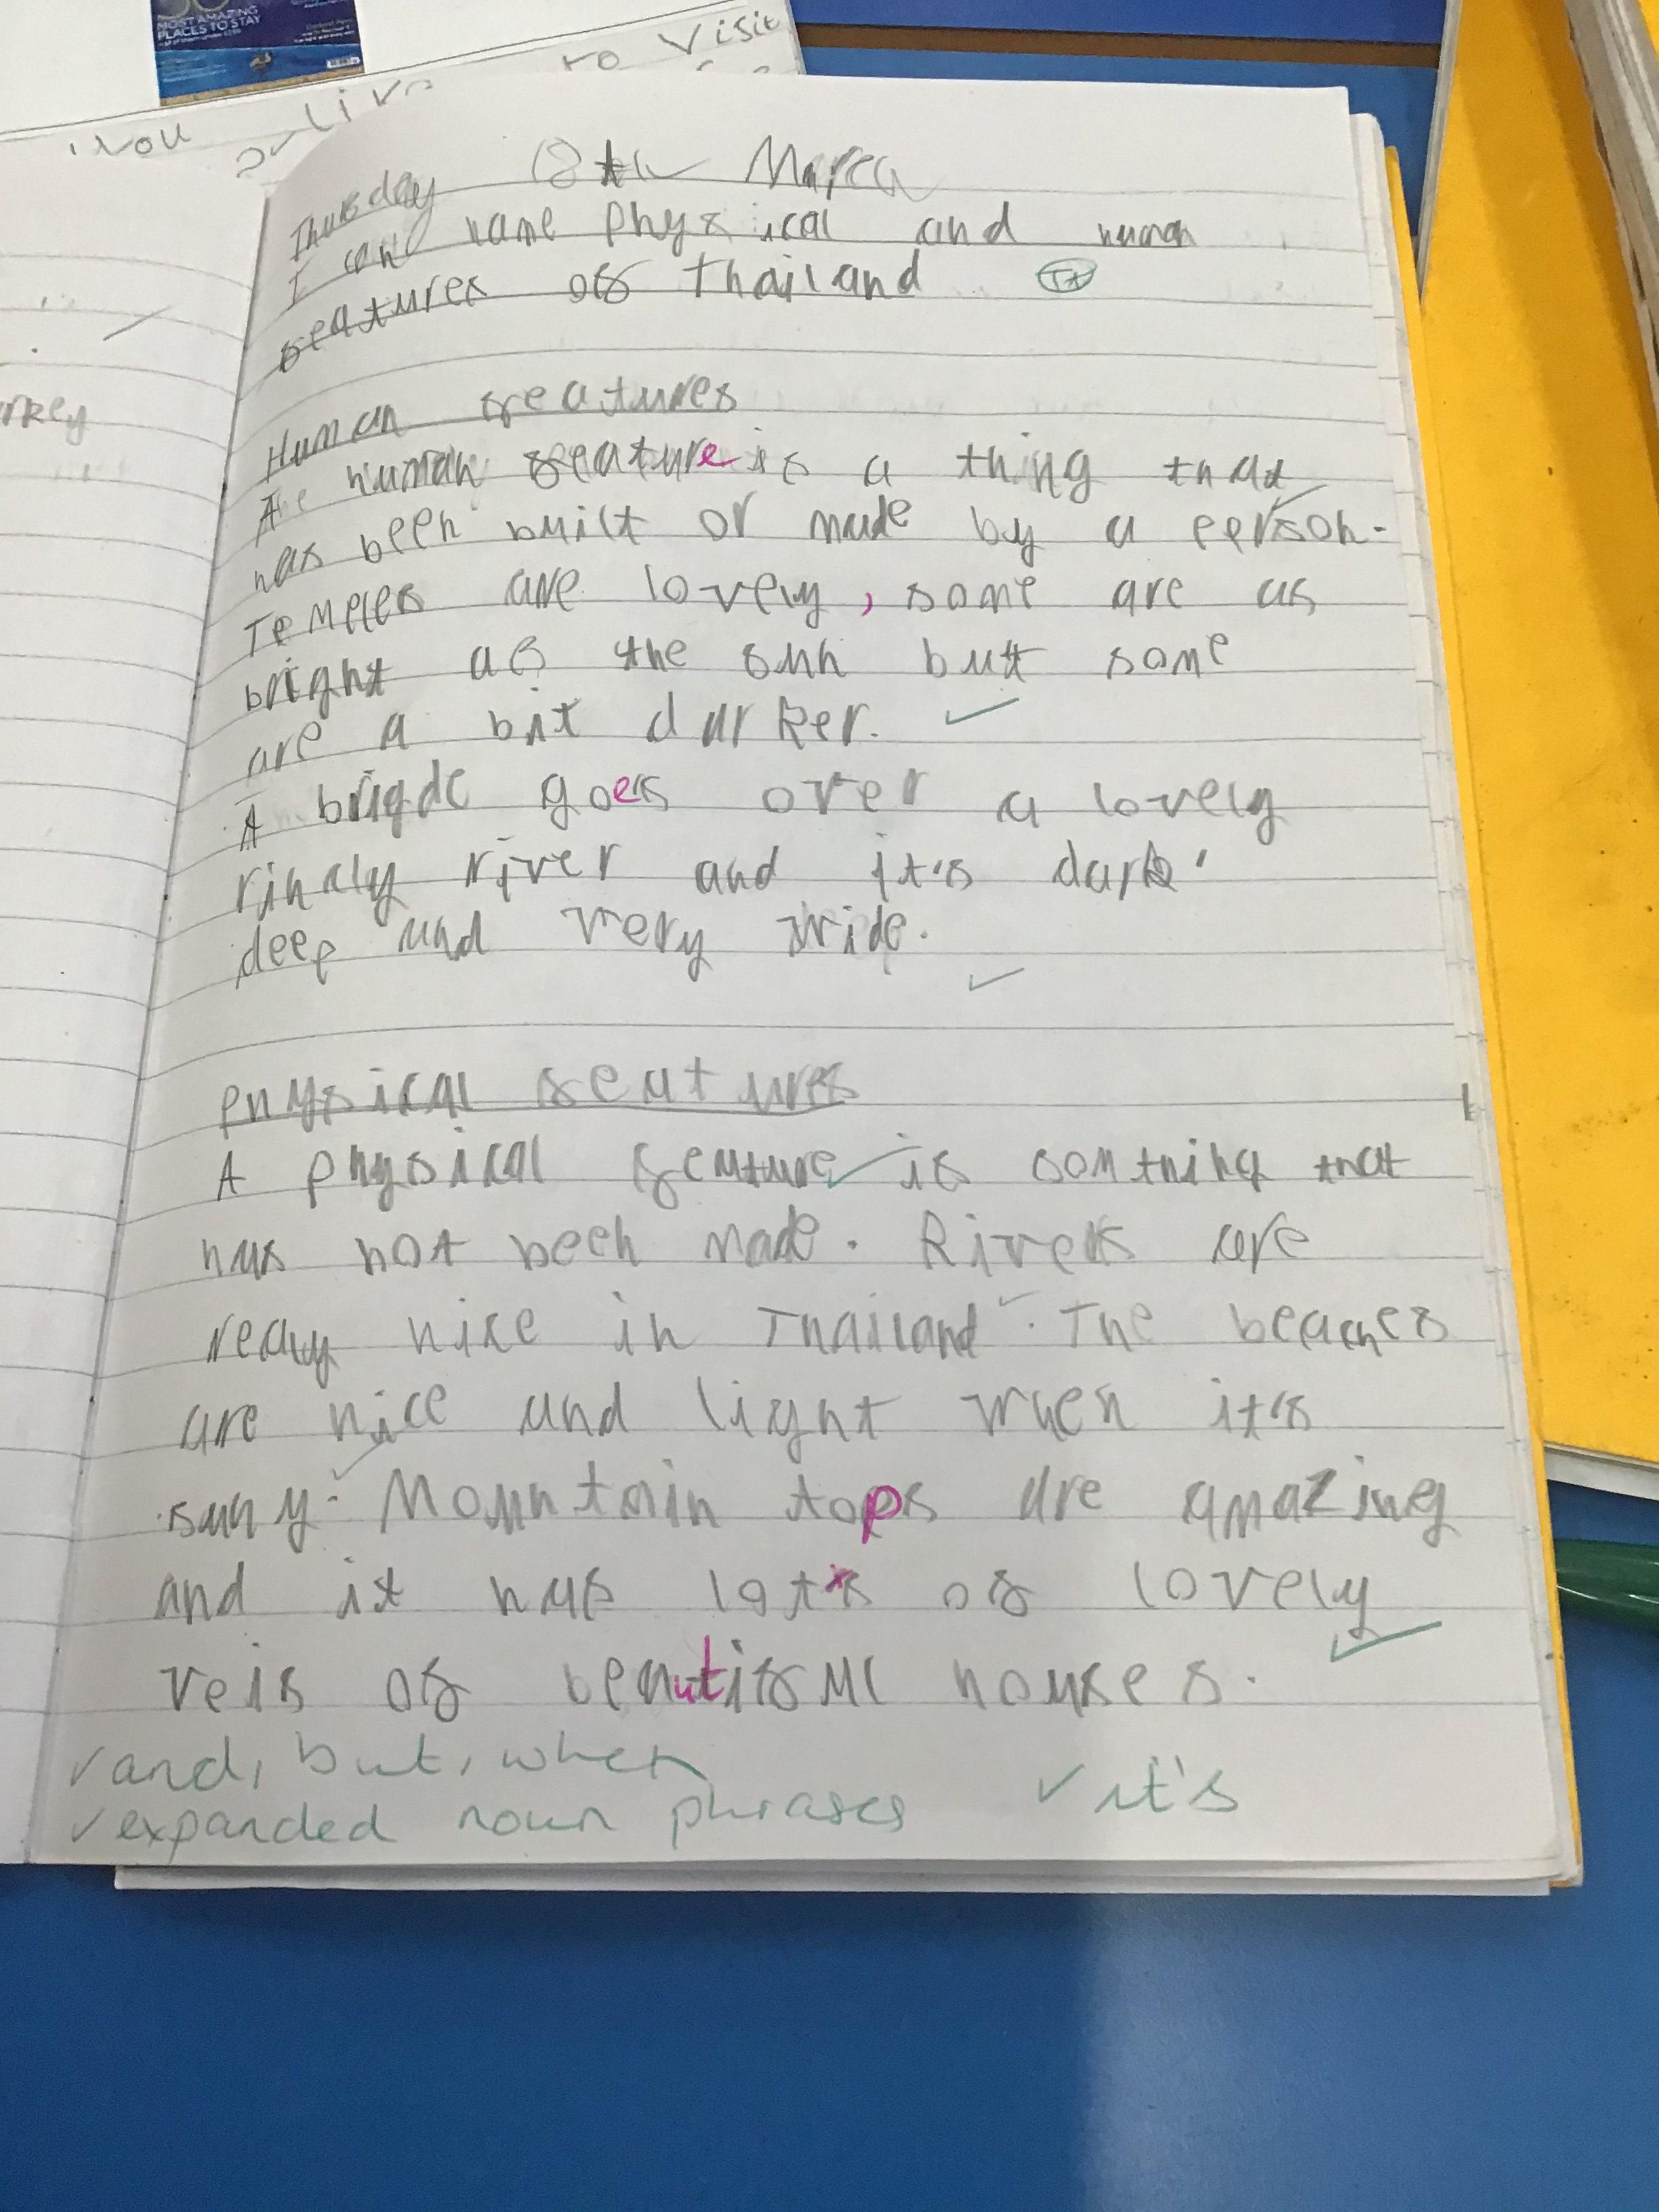 MOST AMAZING
PLACES TO STAY
to visit
you live
rkey
Thursday 8th March
I can name physical and human
features of Thailand
Human features
A human feature is a thing that
has been built or made by a person.
Temples are lovely, some are as
bright as the sun but some
are a bit darker.
A brigde goes over a lovely
rindly river and it's dark,
deep and very wide.
physical features
A physical feature is somthing that
has not been made. Rivers are
realy nise in Thailand. The beaches
are nice and light when it's
suny. Mountain tops are amazing
and it has lots of lovely
veis of beautiful houses.
✓ and, but, when
✓ it's
✓ expanded noun phrases